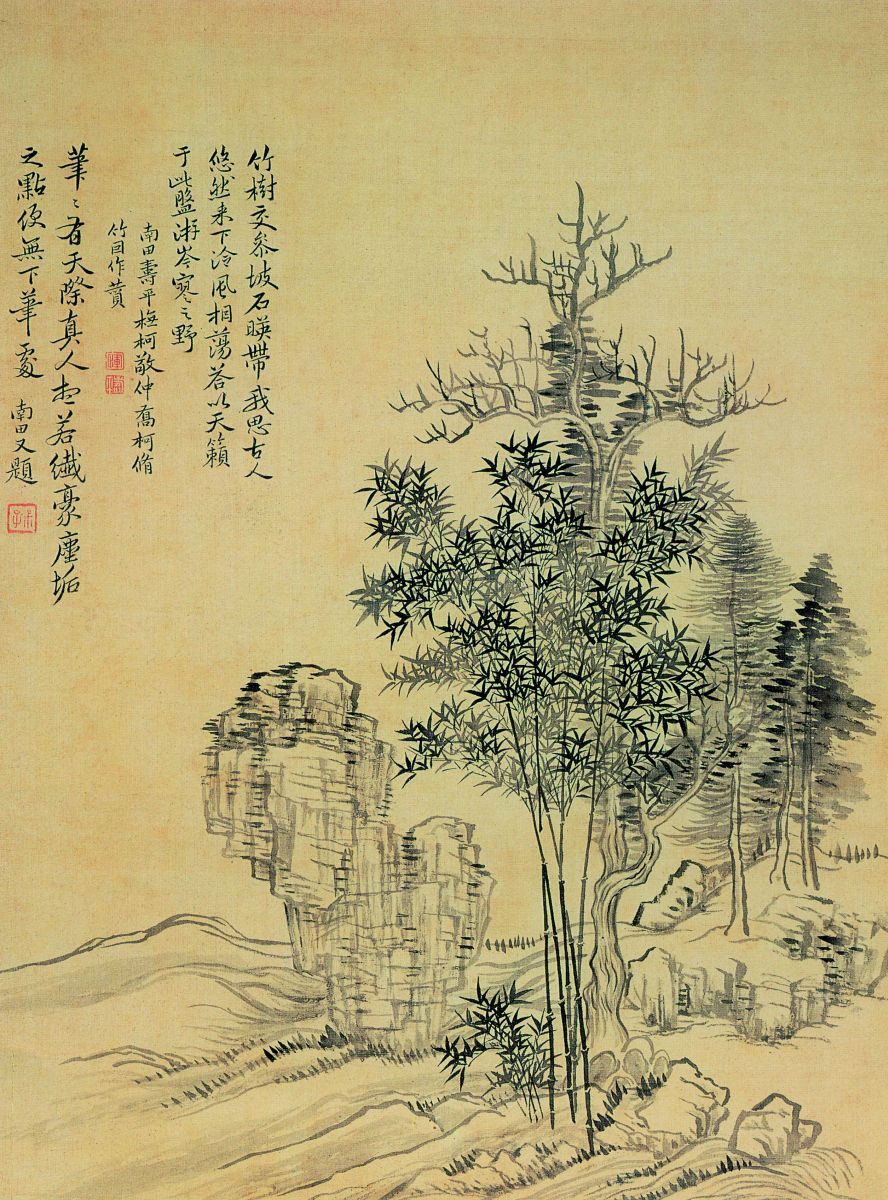 竹樹交參坡石暎帶我思古人
悠然来下泠風相蕩荅以天籟
于此盤游岑寒之野
南田壽平橅柯敬仲喬柯脩
竹回作賛
筆〻有天際真人想若纎豪塵垢
之點便無下筆處 南田又題